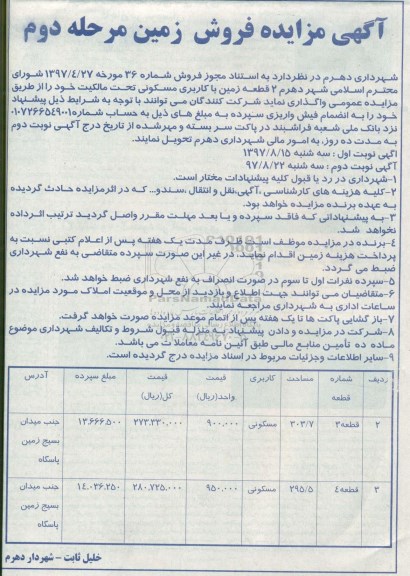 آگهی مزایده فروش زمین مرحله دوم
شهرداری دهرم در نظردارد به استناد مجوز فروش شماره ۳۶ مورخه ۱۳۹۷/۴/۲۷ شورای
محترم اسلامی شهر دهرم ۲ قطعه زمین با کاربری مسکونی تحت مالکیت خود را از طریق
مزایده عمومی واگذاری نماید شرکت کنندگان می توانند با توجه به شرایط ذیل پیشنهاد
خود را به انضمام فیش واریزی سپرده به مبلغ های ذیل به حساب شماره ۰۱۰۷۲۶۶۵۴۹۰۰۱
نزد بانک ملی شعبه فراشبند در پاکت سر بسته و مهرشده از تاریخ درج آگهی نوبت دوم
به مدت ده روز، به امور مالی شهرداری دهرم تحویل نمایند.
آگهی نوبت اول : سه شنبه ۱۳۹۷/۸/۱۵
آگهی نوبت دوم : سه شنبه ۹۷/۸/۲۲
۱-شهرداری در رد یا قبول کلیه پیشنهادات مختار است.
۲-کلیه هزینه های کارشناسی ،آگهی،نقل و انتقال ،سندو... که در اثرمزایده حادث گردیده
به عهده برنده مزایده خواهد بود.
۳-به پیشنهاداتی که فاقد سپرده و یا بعد مهلت مقرر واصل گردید ترتیب اثرداده
نخواهد شد.
۴-برنده در مزایده موظف است ظرف مدت یک هفته پس از اعلام کتبی نسبت به
پرداخت هزینه زمین اقدام نمایند. در غیر این صورت سپرده متقاضی به نفع شهرداری
ضبط می گردد.
۵-سپرده نفرات اول تا سوم در صورت انصراف به نفع شهرداری ضبط خواهد شد.
۶-متقاضیان می توانند جهت اطلاع و بازدید از محل و موقعیت املاک مورد مزایده در
ساعات اداری به شهرداری مراجعه نمایند.
۷-باز گشایی پاکت ها تا یک هفته پس از اتمام موعد مزایده صورت خواهد گرفت.
۸-شرکت در مزایده و دادن پیشنهاد به منزله قبول شروط و تکالیف شهرداری موضوع
ماده ده تأمین منابع مالی طبق آئین نامه معاملات می باشد.
۹-سایر اطلاعات وجزئیات مربوط در اسناد مزایده درج گردیده است.
ردیف شماره قطعه مساحت کاربری قیمت واحد(ریال) قیمت کل(ریال) مبلغ سپرده آدرس
۲ قطعه۳ ۳۰۳/۷ مسکونی ۹۰۰.۰۰۰ ۲۷۳.۳۳۰.۰۰۰ ۱۳.۶۶۶.۵۰۰ جنب میدان بسیج زمین پاسگاه
۳ قطعه۴ ۲۹۵/۵ مسکونی ۹۵۰.۰۰۰ ۲۸۰.۷۲۵.۰۰۰ ۱۴.۰۳۶.۲۵۰ جنب میدان بسیج زمین پاسگاه
خلیل ثابت - شهردار دهرم